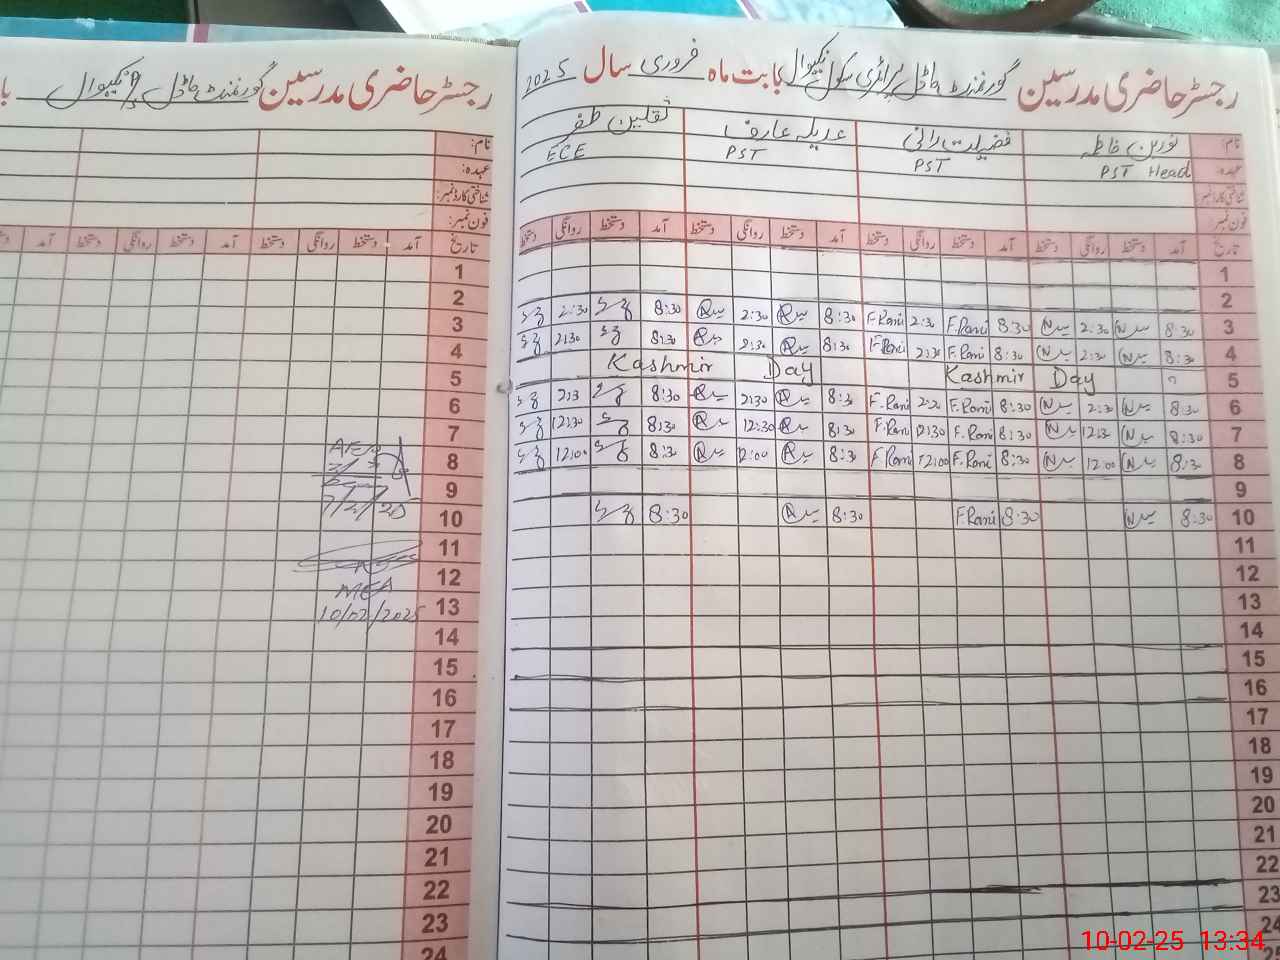 رجسٹر حاضری مدرسین گورنمنٹ ماڈل پرائمری سکول نکیوال بابت ماہ فروری سال 2025
نام: نورین فاطمہ فضیلت رانی عدیلہ عارف ثقلین ظفر
عہدہ: PST Head PST PST ECE
شناختی کارڈ نمبر:
فون نمبر:
تاریخ آمد دستخط روانگی دستخط آمد دستخط روانگی دستخط آمد دستخط روانگی دستخط آمد دستخط روانگی دستخط
1
2
3 8:30 2:30 8:30 F.Rani 2:30 F.Rani 8:30 2:30 8:30 2:30
4 8:30 2:30 8:30 F.Rani 2:30 F.Rani 8:30 2:30 8:30 2:30
5 Kashmir Day Kashmir Day
6 8:30 2:30 8:30 F.Rani F.Rani 8:30 2:30 8:30 2:30
7 8:30 12:30 8:30 F.Rani 12:30 F.Rani 8:30 12:30 8:30 12:30
8 8:30 12:00 8:30 F.Rani 12:00 F.Rani 8:30 12:00 8:30 12:00
9
10 8:30 8:30 F.Rani 8:30 8:30
11
12
13
14
15
16
17
18
19
20
21
22
23
24
رجسٹر حاضری مدرسین گورنمنٹ ماڈل نکیوال
نام:
عہدہ:
شناختی کارڈ نمبر:
فون نمبر:
تاریخ آمد دستخط روانگی دستخط آمد دستخط روانگی دستخط آمد
1
2
3
4
5
6
7
8 AEO
9
10 7/2/25
11
12 MEA
13 10/02/2025
14
15
16
17
18
19
20
21
22
23
24
10-02-25 13:34